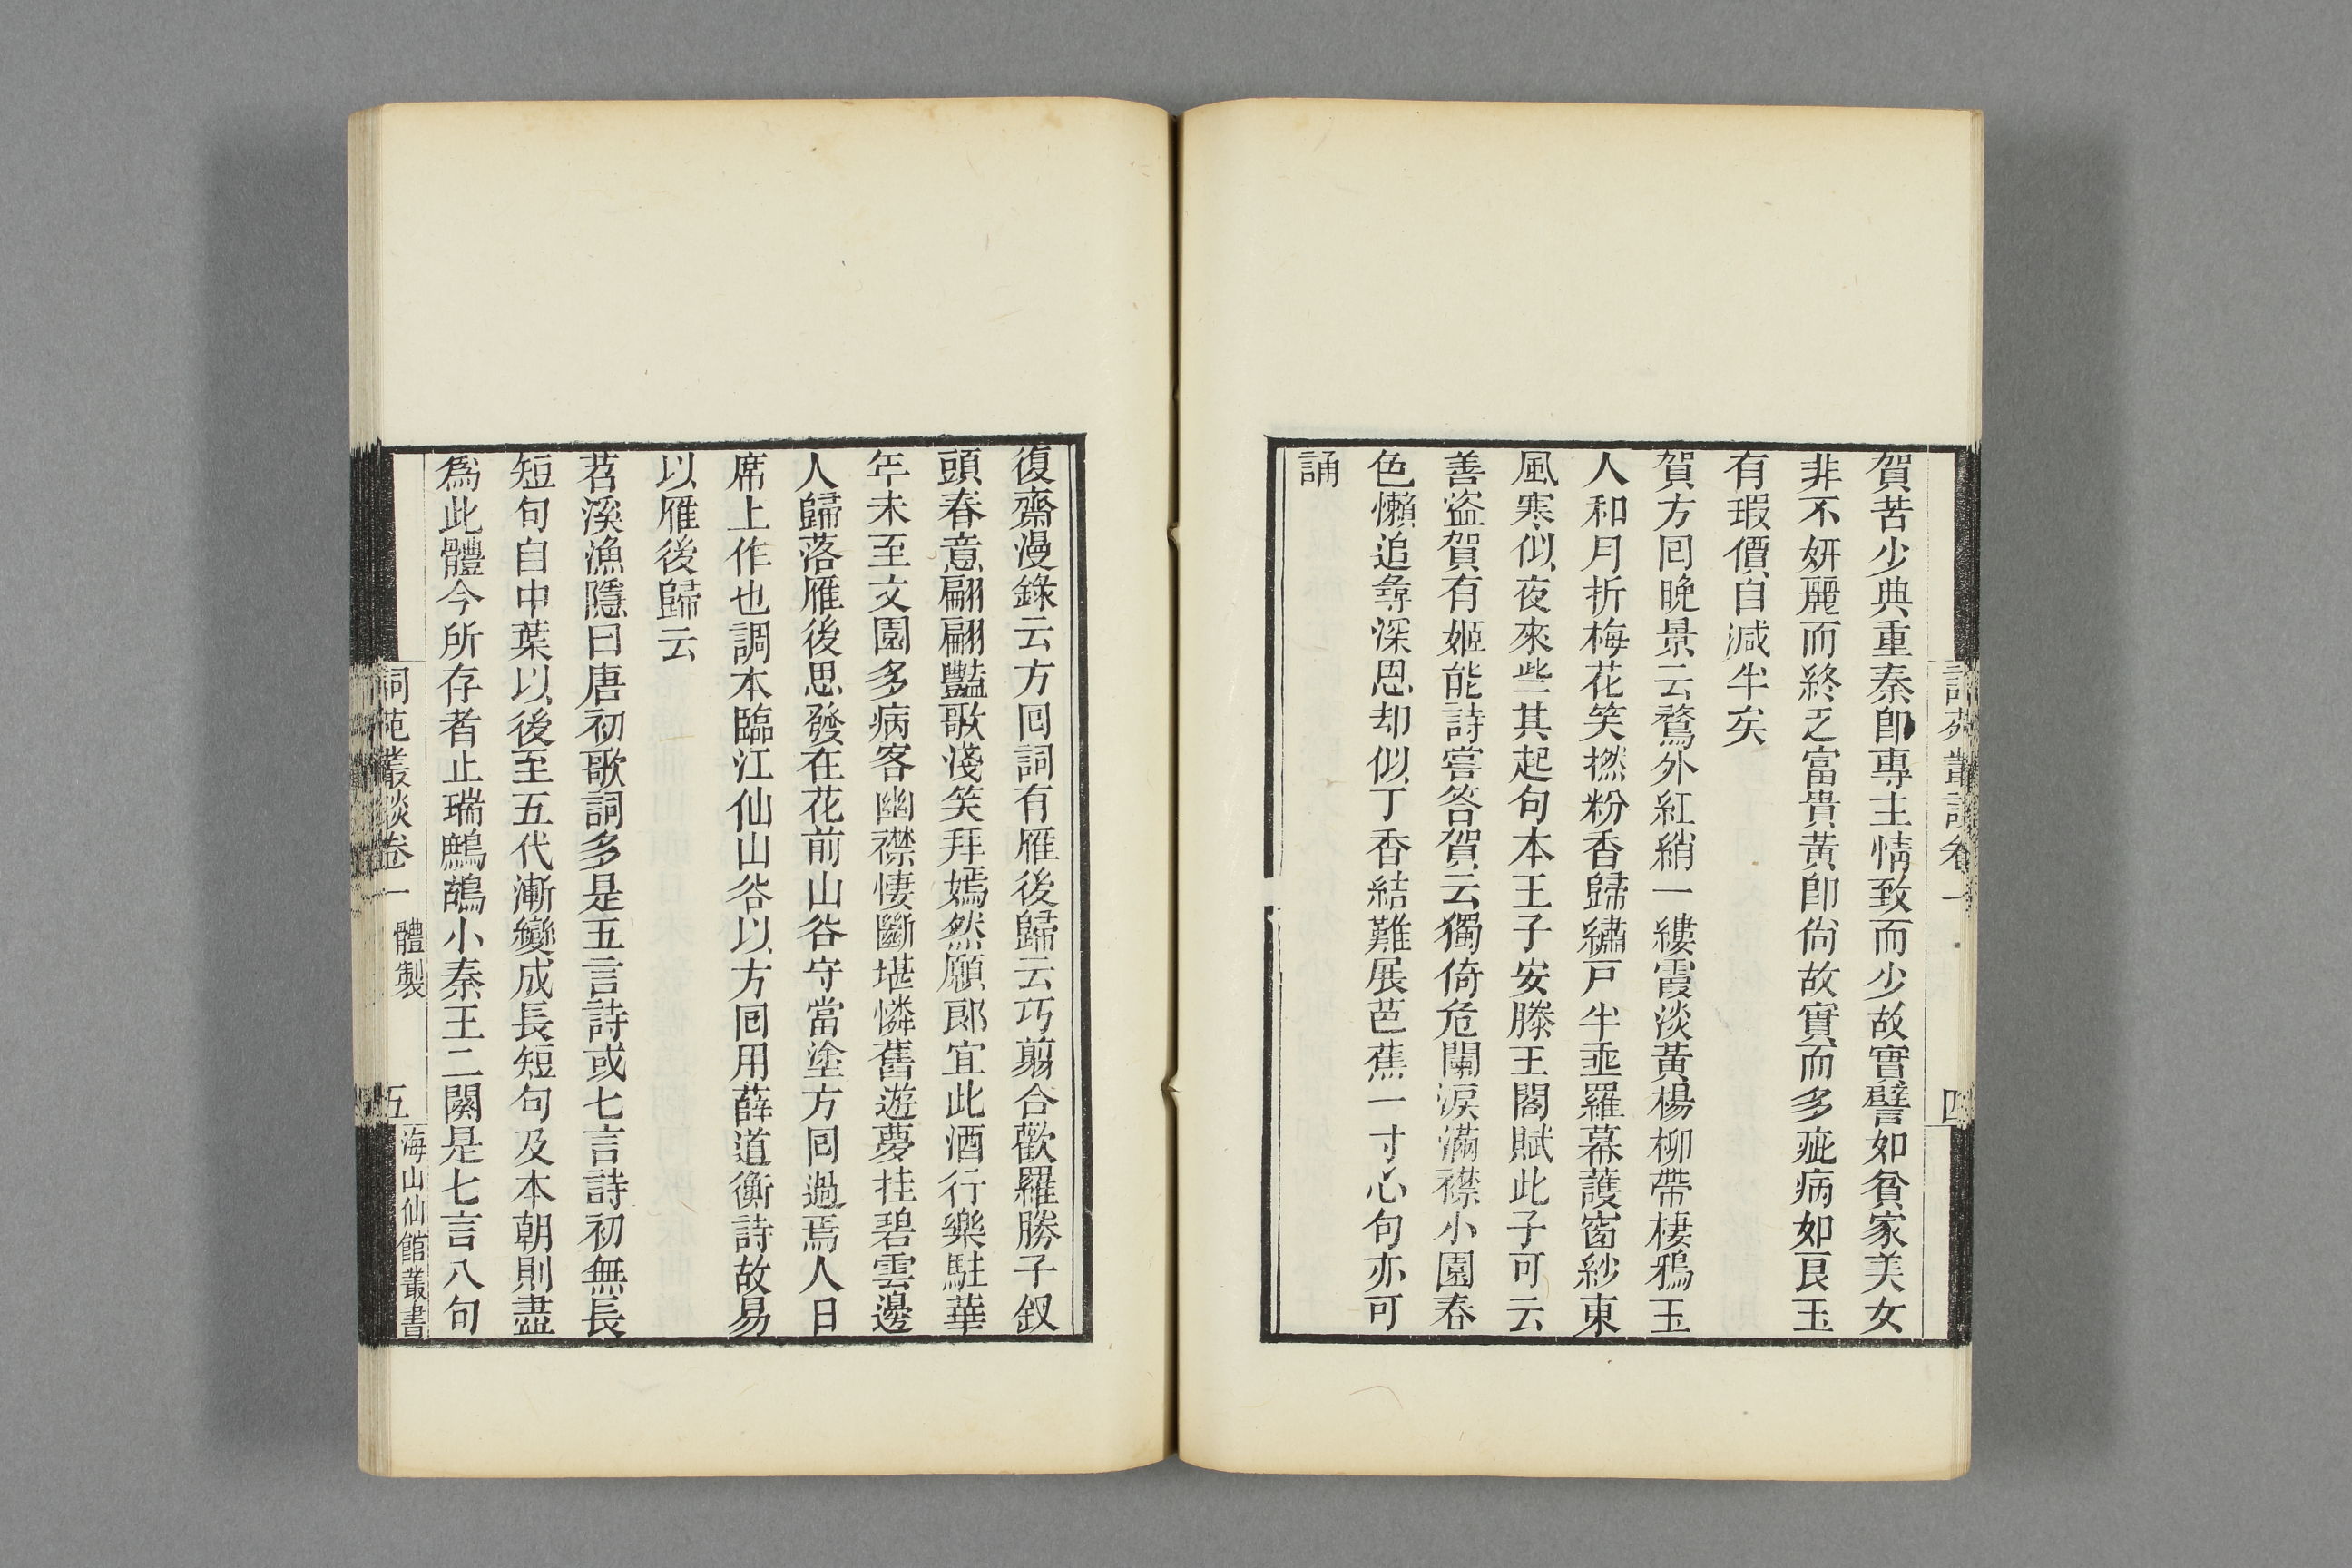 賀苦少典重秦卽專主情致而少故實譬如貧家美女
非不妍麗而終乏富貴黃卽尙故實而多疵病如良玉
有瑕價自減半矣
賀方回晚景云鶩外紅綃一縷霞淡黃楊柳帶棲鴉玉
人和月折梅花笑撚粉香歸繡戸半垂羅幕護窗紗東
風寒似夜來些其起句本王子安滕王閣賦此子可云
善盜賀有姬能詩嘗答賀云獨倚危闌淚滿襟小園春
色懶追尋深恩却似丁香結難展芭蕉一寸心句亦可
誦
詞苑叢談卷一
四
復齋漫錄云方回詞有雁後歸云巧翦合歡羅勝子釵
頭春意翩翩豔歌淺笑拜嫣然願郎宜此酒行樂駐華
年未至文園多病客幽襟悽斷堪憐舊遊夢挂碧雲邊
人歸落雁後思發在花前山谷守當塗方回過焉人日
席上作也調本臨江仙山谷以方回用薛道衡詩故易
以雁後歸云
苕溪漁隱曰唐初歌詞多是五言詩或七言詩初無長
短句自中葉以後至五代漸變成長短句及本朝則盡
爲此體今所存者止瑞鷓鴣小秦王二闋是七言八句
詞苑叢談卷一
體製
五
海山仙館叢書